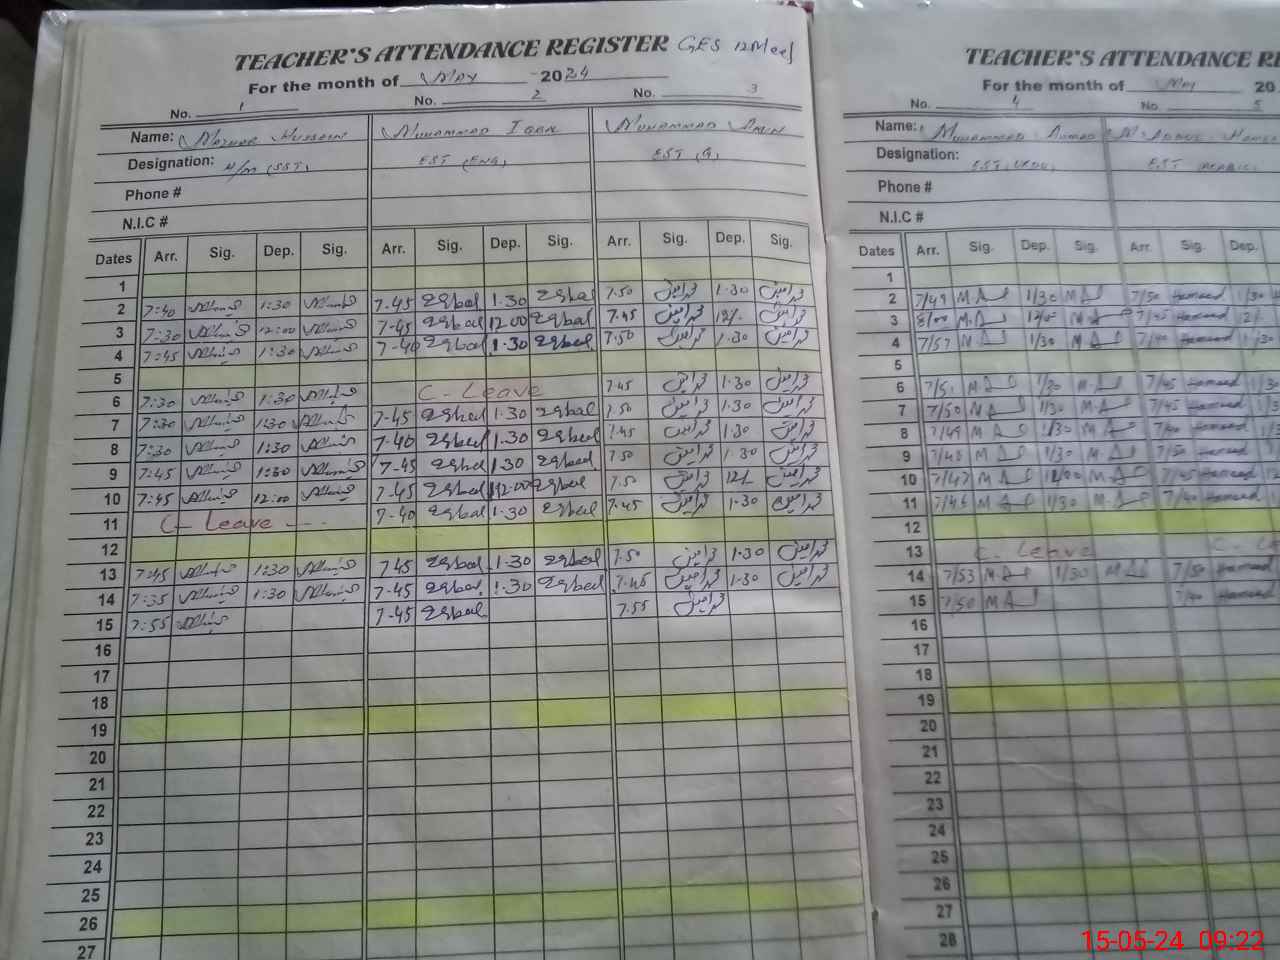 TEACHER'S ATTENDANCE REGISTER GES
For the month of May 2024
No. 1 No. 2 No. 3
Name: Mazhar Hussain Muhammad Iqbal Muhammad Amin
Designation: H/M (SST) EST (ENG) EST (G)
Phone #
N.I.C #
Dates Arr. Sig. Dep. Sig. Arr. Sig. Dep. Sig. Arr. Sig. Dep. Sig.
1
2 7:40 1:30 7-45 Iqbal 1-30 Iqbal 7-50 محمد امین 1-30 محمد امین
3 7:30 12:00 7-45 Iqbal 12-00 Iqbal 7-45 محمد امین 12/- محمد امین
4 7:45 1:30 7-40 Iqbal 1-30 Iqbal 7-50 محمد امین 1-30 محمد امین
5
6 7:30 1:30 C- Leave 7-45 محمد امین 1-30 محمد امین
7 7:30 1:30 7-45 Iqbal 1-30 Iqbal 7-50 محمد امین 1-30 محمد امین
8 7:30 1:30 7-40 Iqbal 1-30 Iqbal 7-45 محمد امین 1-30 محمد امین
9 7:45 1:30 7-45 Iqbal 1-30 Iqbal 7-50 محمد امین 1-30 محمد امین
10 7:45 12:00 7-45 Iqbal 12-00 Iqbal 7-50 محمد امین 12/- محمد امین
11 C- Leave 7-40 Iqbal 1-30 Iqbal 7-45 محمد امین 1-30 محمد امین
12
13 7:45 1:30 7-45 Iqbal 1-30 Iqbal 7-50 محمد امین 1-30 محمد امین
14 7:35 1:30 7-45 Iqbal 1-30 Iqbal 7-45 محمد امین 1-30 محمد امین
15 7:55 7-45 Iqbal 7-55 محمد امین
16
17
18
19
20
21
22
23
24
25
26
27
TEACHER'S ATTENDANCE RE
For the month of May 20
No. 4 No. 5
Name: Muhammad Ahmad
Designation: EST (URDU) EST Arabic
Phone #
N.I.C #
Dates Arr. Sig. Dep. Sig. Arr. Sig. Dep.
1
2 7/49 1/30 7/50 Hameed 1/30
3 8/00 12/00 7/45 Hameed 12/
4 7/57 1/30 7/40 Hameed 1/30
5
6 7/51 1/30 7/45 Hameed 1/30
7 7/50 1/30 7/45 Hameed
8 7/49 1/30 7/40 Hameed
9 7/48 1/30 7/50 Hameed
10 7/47 12/00 7/45 Hameed
11 7/46 1/30 7/40 Hameed
12
13 C. Leave
14 7/53 1/30 7/50 Hameed
15 7/50 7/40 Hameed
16
17
18
19
20
21
22
23
24
25
26
27
28
15-05-24 09:22